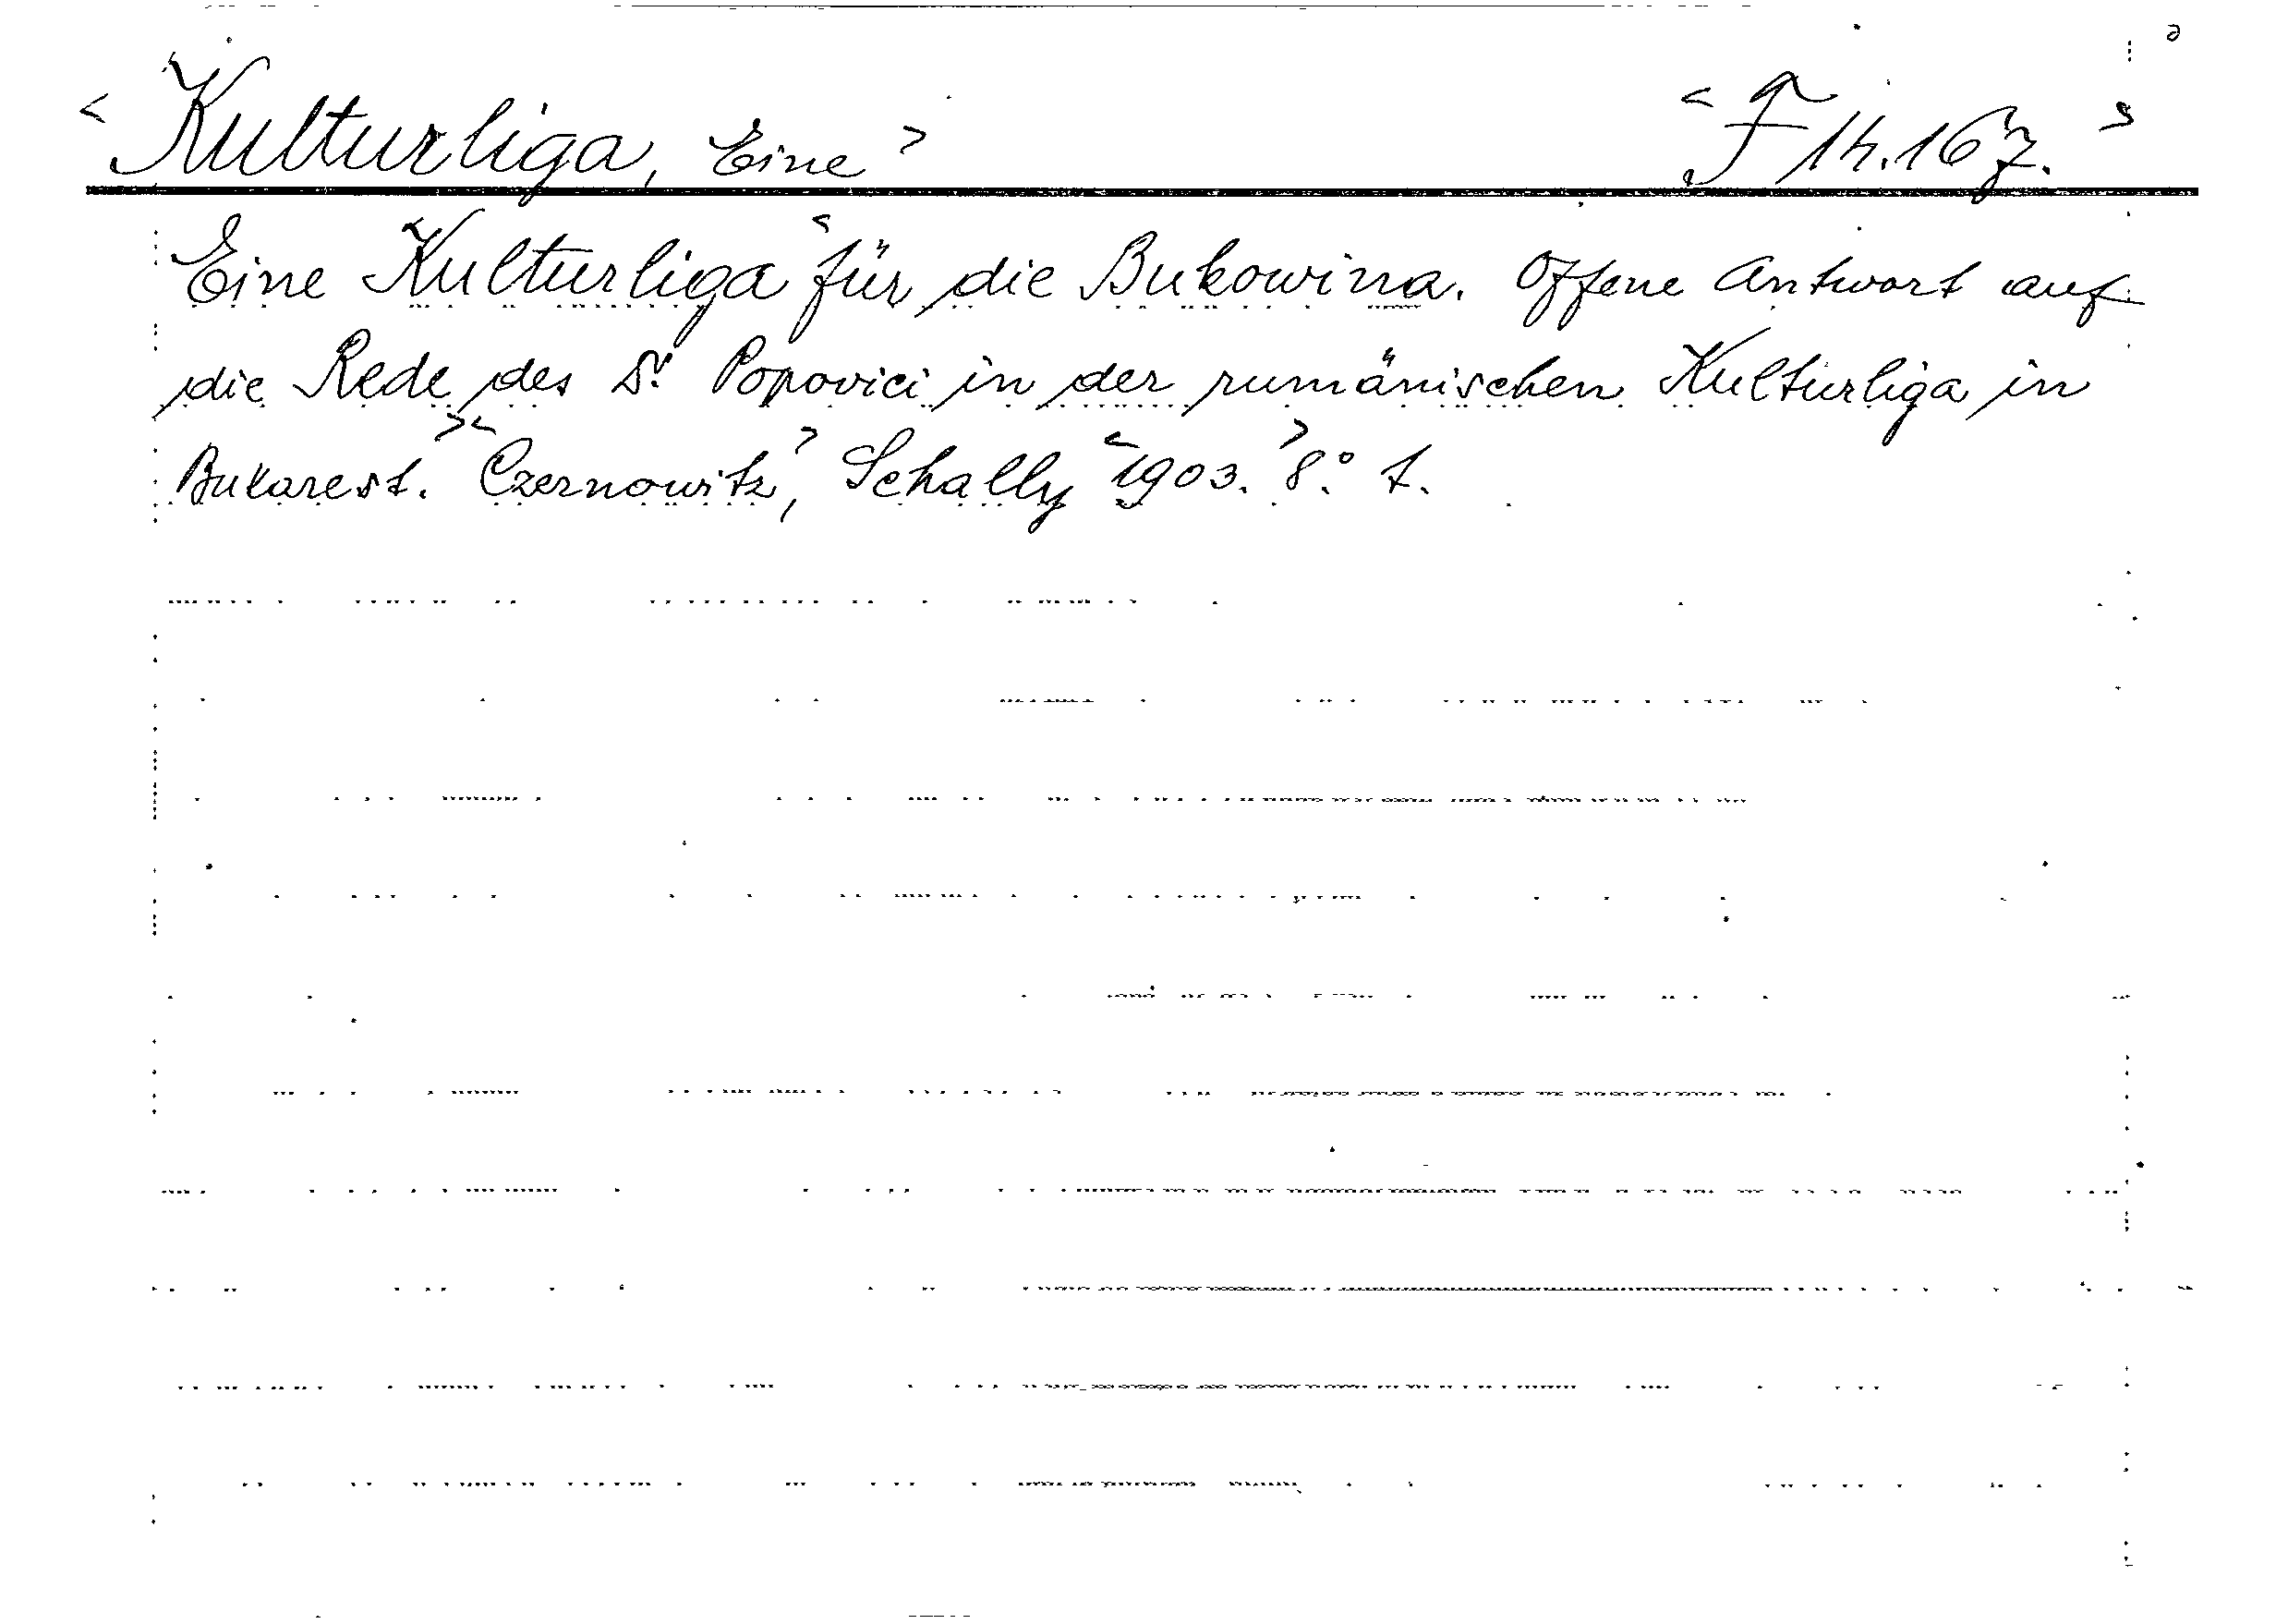 <Kulturliga, Eine> <F 14.167.>
Eine Kulturliga <für die Bukowina. Offene Antwort auf
die Rede des Dr. Popovici in der rumänischen Kulturliga in
Bukarest.> <Czernowitz>, Schally <1903.> 8.° f.